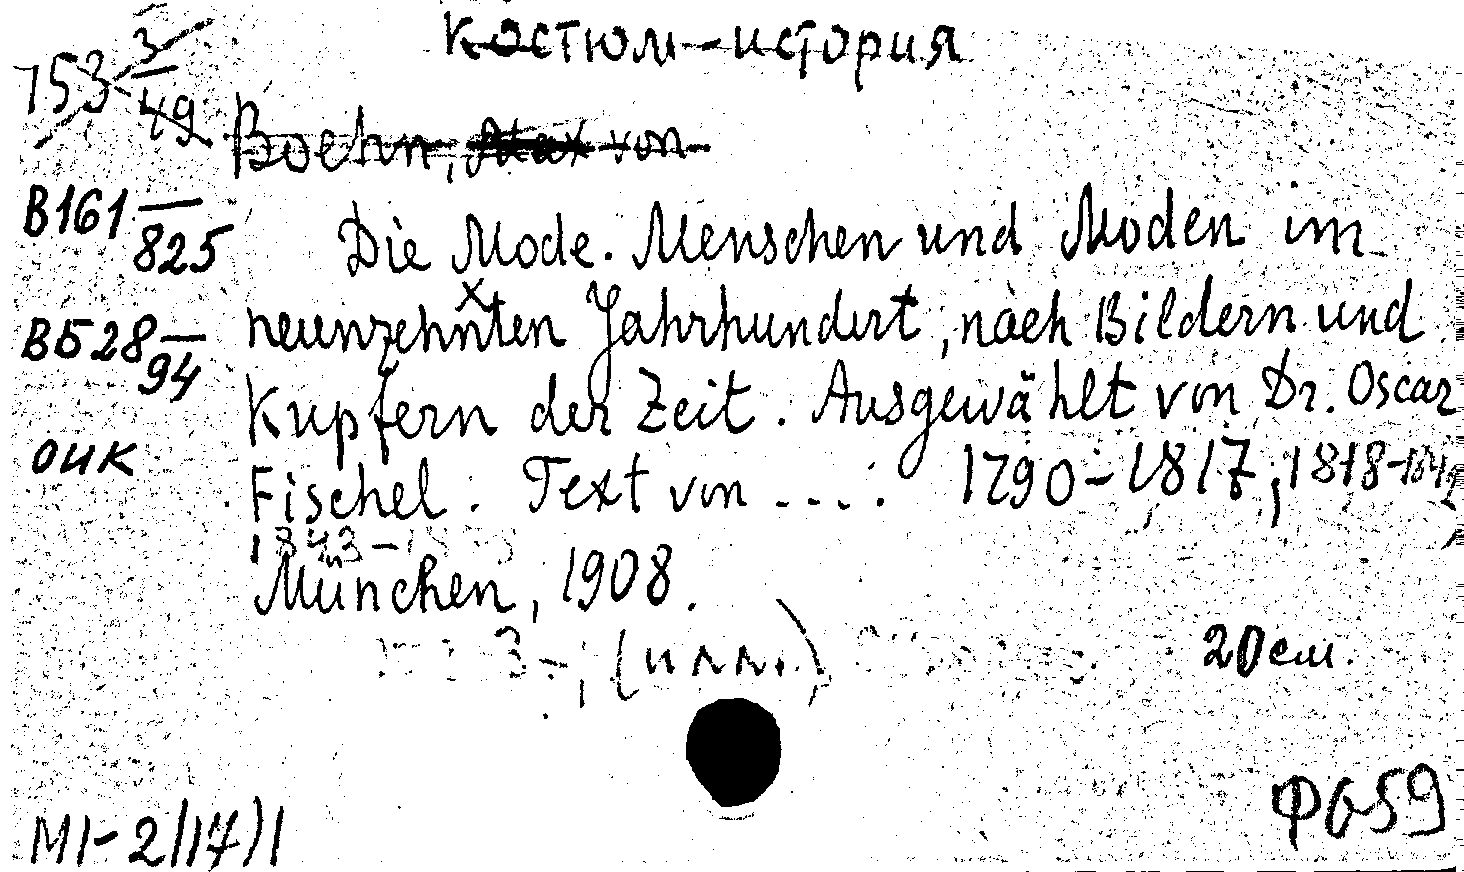 Костюм-история
153 3/49
Boehn, Max von
В161 —/825
Die Mode. Menschen und Moden im
neunzehnten Jahrhundert, nach Bildern und
ВБ28 —/94
Kupfern der Zeit. Ausgewählt von Dr. Oscar
оик
Fischel. Text von ....: 1790-1817, 1818-1842
1843-18
München, 1908.
3-; (илл.)
20 см.
МI-2/17)1
ФG59